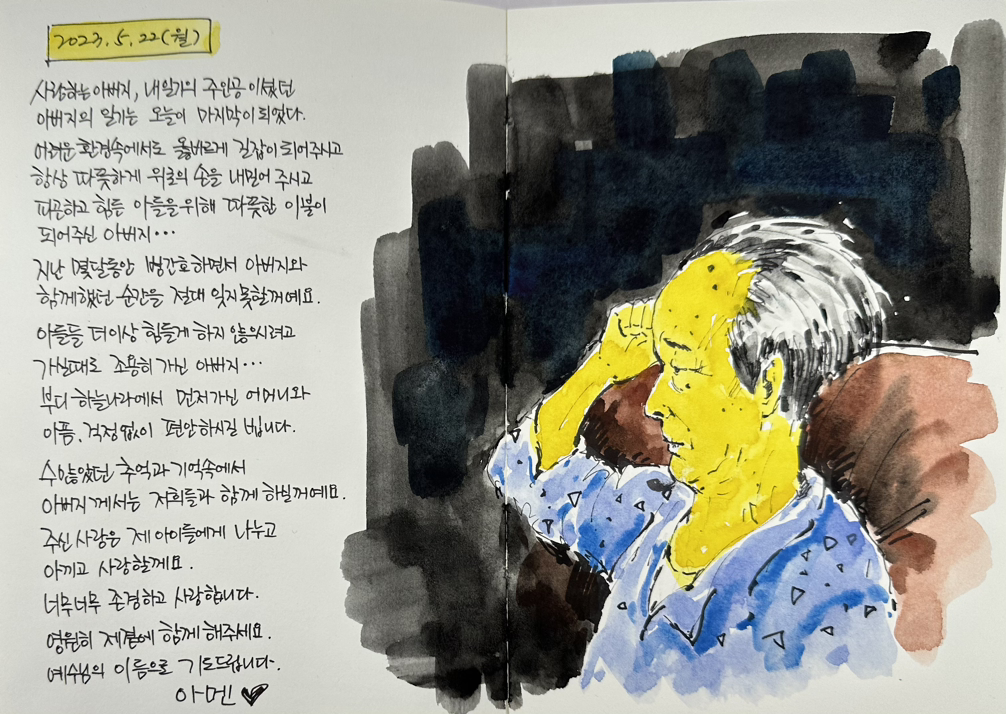 2023. 5. 22 (월)
사랑하는 아버지, 내 일기의 주인공이셨던
아버지의 일기는 오늘이 마지막이 되었다.
어려운 환경속에서도 올바르게 길잡이 되어주시고
항상 따뜻하게 위로의 손을 내밀어 주시고
피곤하고 힘든 아들을 위해 따뜻한 이불이
되어주신 아버지...
지난 몇달동안 병간호하면서 아버지와
함께했던 순간을 절대 잊지못할꺼예요.
아들들 더이상 힘들게 하지 않으시려고
가실때도 조용히 가신 아버지...
부디 하늘나라에서 먼저가신 어머니와
아픔, 걱정없이 편안하시길 빕니다.
수많았던 추억과 기억속에서
아버지께서는 저희들과 함께 하실꺼예요.
주신 사랑은 제 아이들에게 나누고
아끼고 사랑할께요.
너무너무 존경하고 사랑합니다.
영원히 제곁에 함께 해주세요.
예수님의 이름으로 기도드립니다.
아멘 ♥